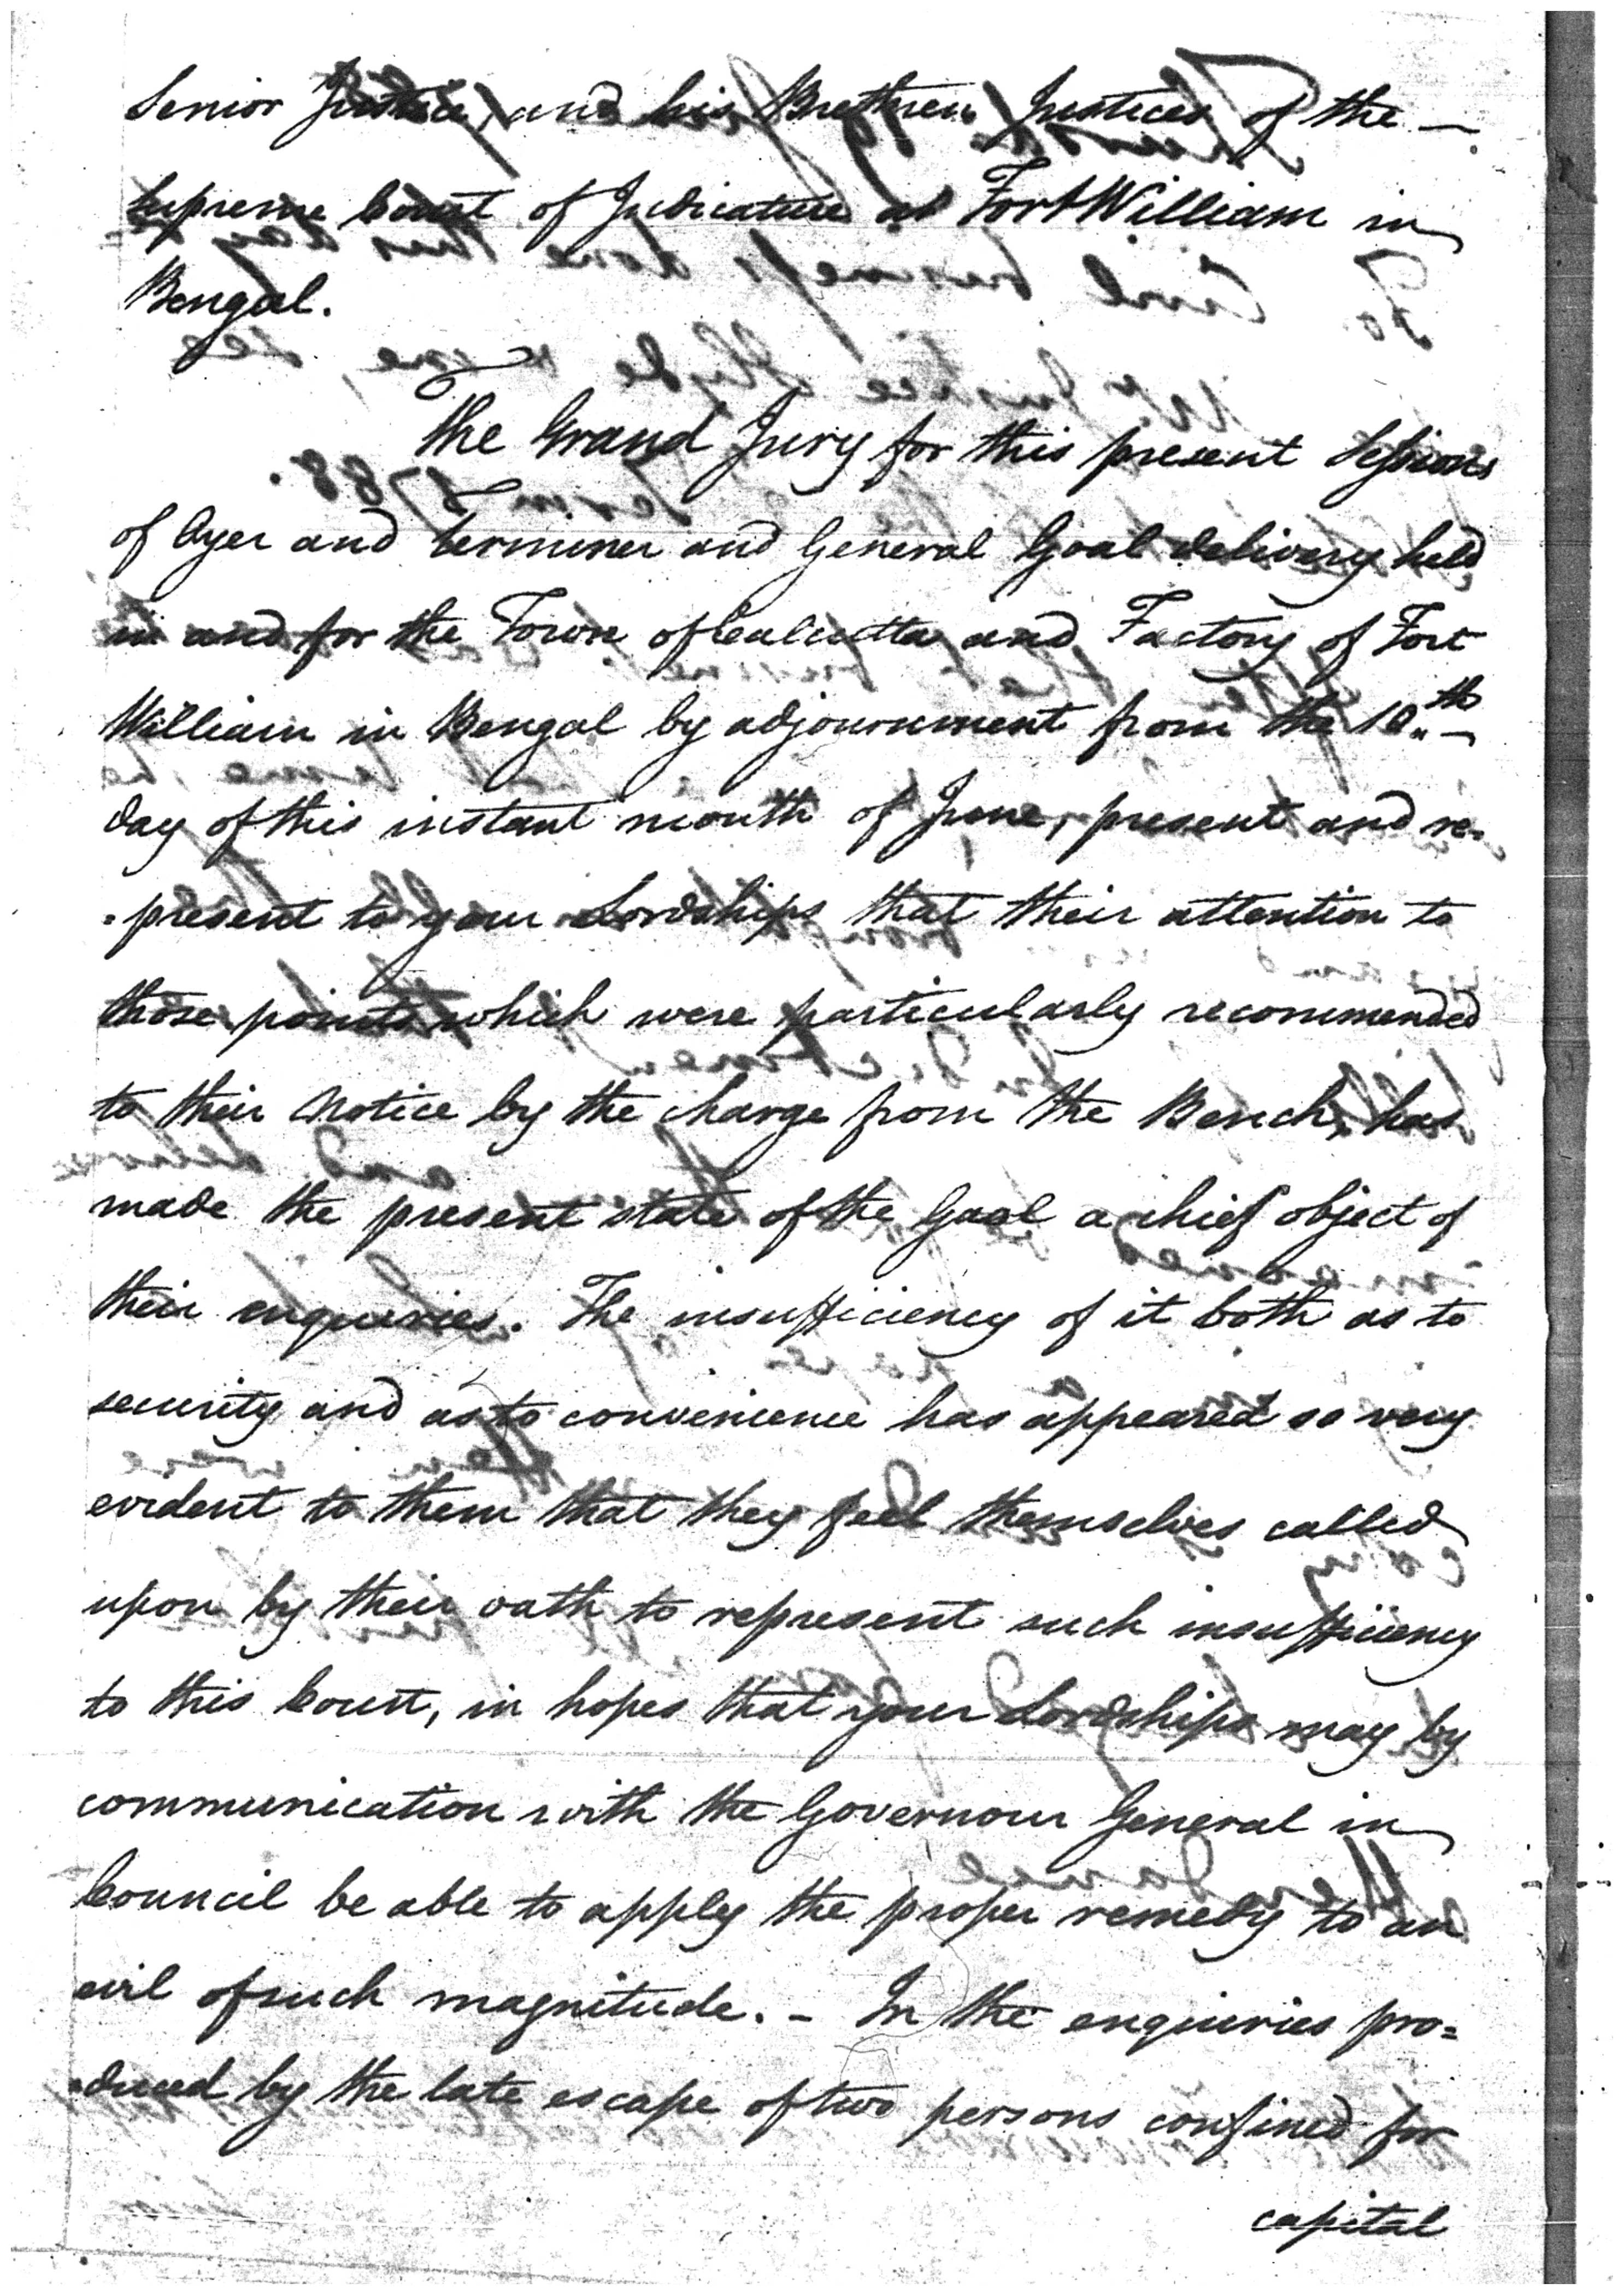 Senior Justice, and his Brethren Justices of the —
Supreme Court of Judicature at Fort William in
Bengal.
The Grand Jury for this present Sessions
of Oyer and terminer and General Goal delivery held
in and for the Town of Calcutta and Factory of Fort
William in Bengal by adjournment from the 10th —
day of this instant month of June, present and re=
=present to your Lordships that their attention to
those points which were particularly recommended
to their Notice by the charge from the Bench, has
made the present state of the Goal a chief object of
their enquiries. The insufficiency of it both as to
security and as to convenience has appeared so very
evident to them that they feel themselves called
upon by their oath to represent such insufficiency
to this Court, in hopes that your Lordships may by
communication with the Governour General in
Council be able to apply the proper remedy to an
evil of such magnitude. — In the enquiries pro=
=duced by the late escape of two persons confined for
capital